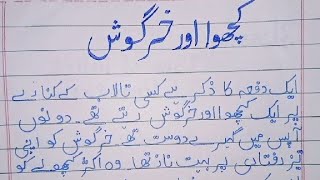 کچھوا اور خرگوش
ایک دفعہ کا ذکر ہے کسی تالاب کے کنارے
پر ایک کچھوا اور خرگوش رہتے تھے۔ دونوں
آپس میں گہرے دوست تھے۔ خرگوش کو اپنی
تیز رفتاری پر بہت ناز تھا۔ وہ اکثر کچھوے کو